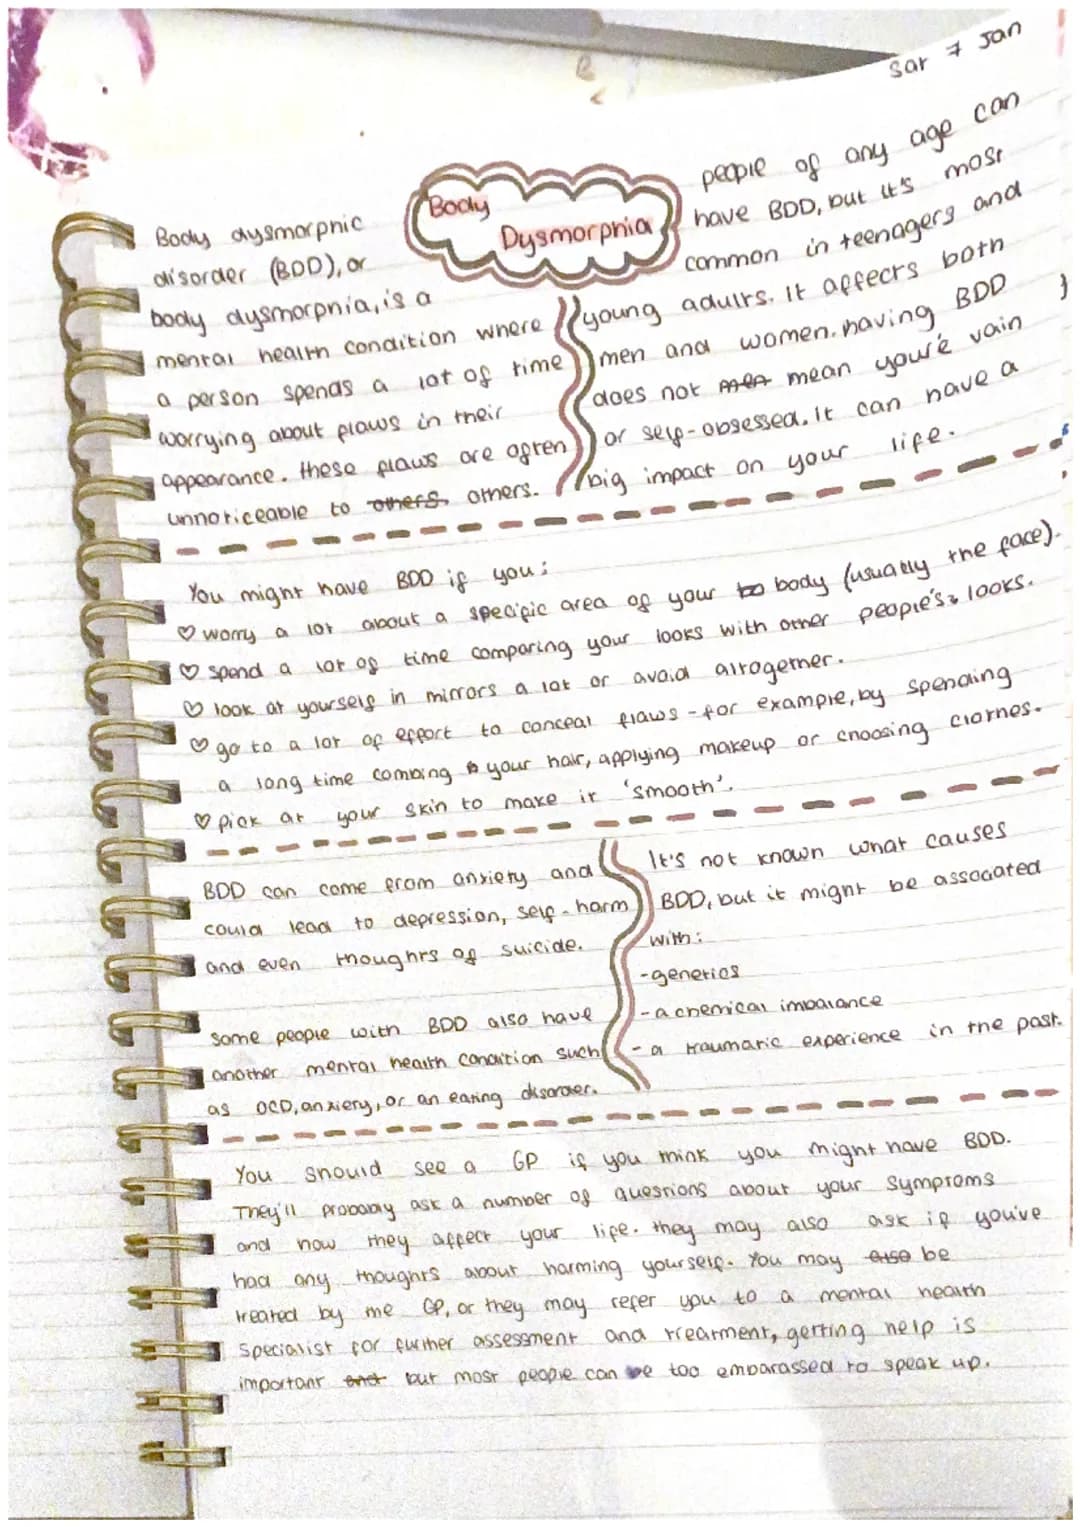 Sat 7 Jan
Body
Dysmorphia
Body dysmorphic
disorder (BDD), or
body dysmorpnia, is a
mental health condition where
a person spends a lot of time
worrying about flaws in their
appearance. these flaws are often
unnoticeable to others others.
people of any age can
have BDD, but it's most
common in teenagers and
young adults. It affects both
men and women. having BDD
does not men mean you're vain
or self-obsessed. it can have a
big impact on your life.
You might have BDD if you:
♡ worry a lot about a specific area of your to body (usually the face).
♡ spend a lot of time comparing your looks with other people's looks.
♡ look at yourself in mirrors a lot or avoid altogether.
♡ go to a lot of effort to conceal flaws - for example, by spending
a long time combing your hair, applying makeup or choosing clothes.
♡ pick at your skin to make it 'smooth'.
BDD can come from anxiety and
could lead to depression, self-harm
and even thoughts of suicide.
some people with BDD also have
another mental health condition such
as OCD, anxiety, or an eating disorder.
It's not known what causes
BDD, but it might be associated
with:
-genetics
-a chemical imbalance
- a traumatic experience in the past.
You should see a GP if you think you might have BDD.
They'll probably ask a number of questions about your symptoms
and how they affect your life. they may also ask if you've
had any thoughts about harming yourself. You may also be
treated by the GP, or they may refer you to a mental health
specialist for further assessment and treatment, getting help is
important and but most people can be too embarassed to speak up.